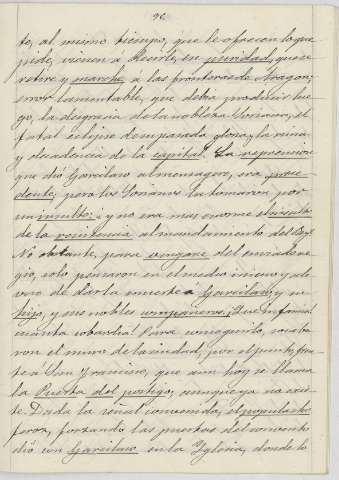 96.
te, al mismo tiempo, que le ofrecen lo que
pide, vienen á decirle, en puridad, que se
retire y marche, á las fronteras de Aragon;
error lamentable, que debia producir lue-
go, la desgracia de la nobleza Soriana, el
fatal eclipse de una pasada gloria y la ruina
y decadencia de la capital. La reprension
que dió Garcilaso al mensagero, era proce-
dente; pero los Sorianos la tomaron por
un insulto; y no era mas enorme el insulto
de la resistencia al mandamiento del Rey.
No obstante, para vengarse del
solo pensaron en el medio inicuo y ale-
voso de dar la muerte á Garcilaso y su
hijo, y sus nobles compañeros. ¡Que infamia!
cuanta cobardia! Para conseguirlo,
ron el muro de la ciudad, por el punto, fren-
te a San Francisco, que aun hoy se llama
la Puerta del postigo, aunque ya no exis-
te. Dada la señal convenida, el populacho
feroz, forzando las puertas del convento
dió con Garcilaso en la Yglesia, donde lo